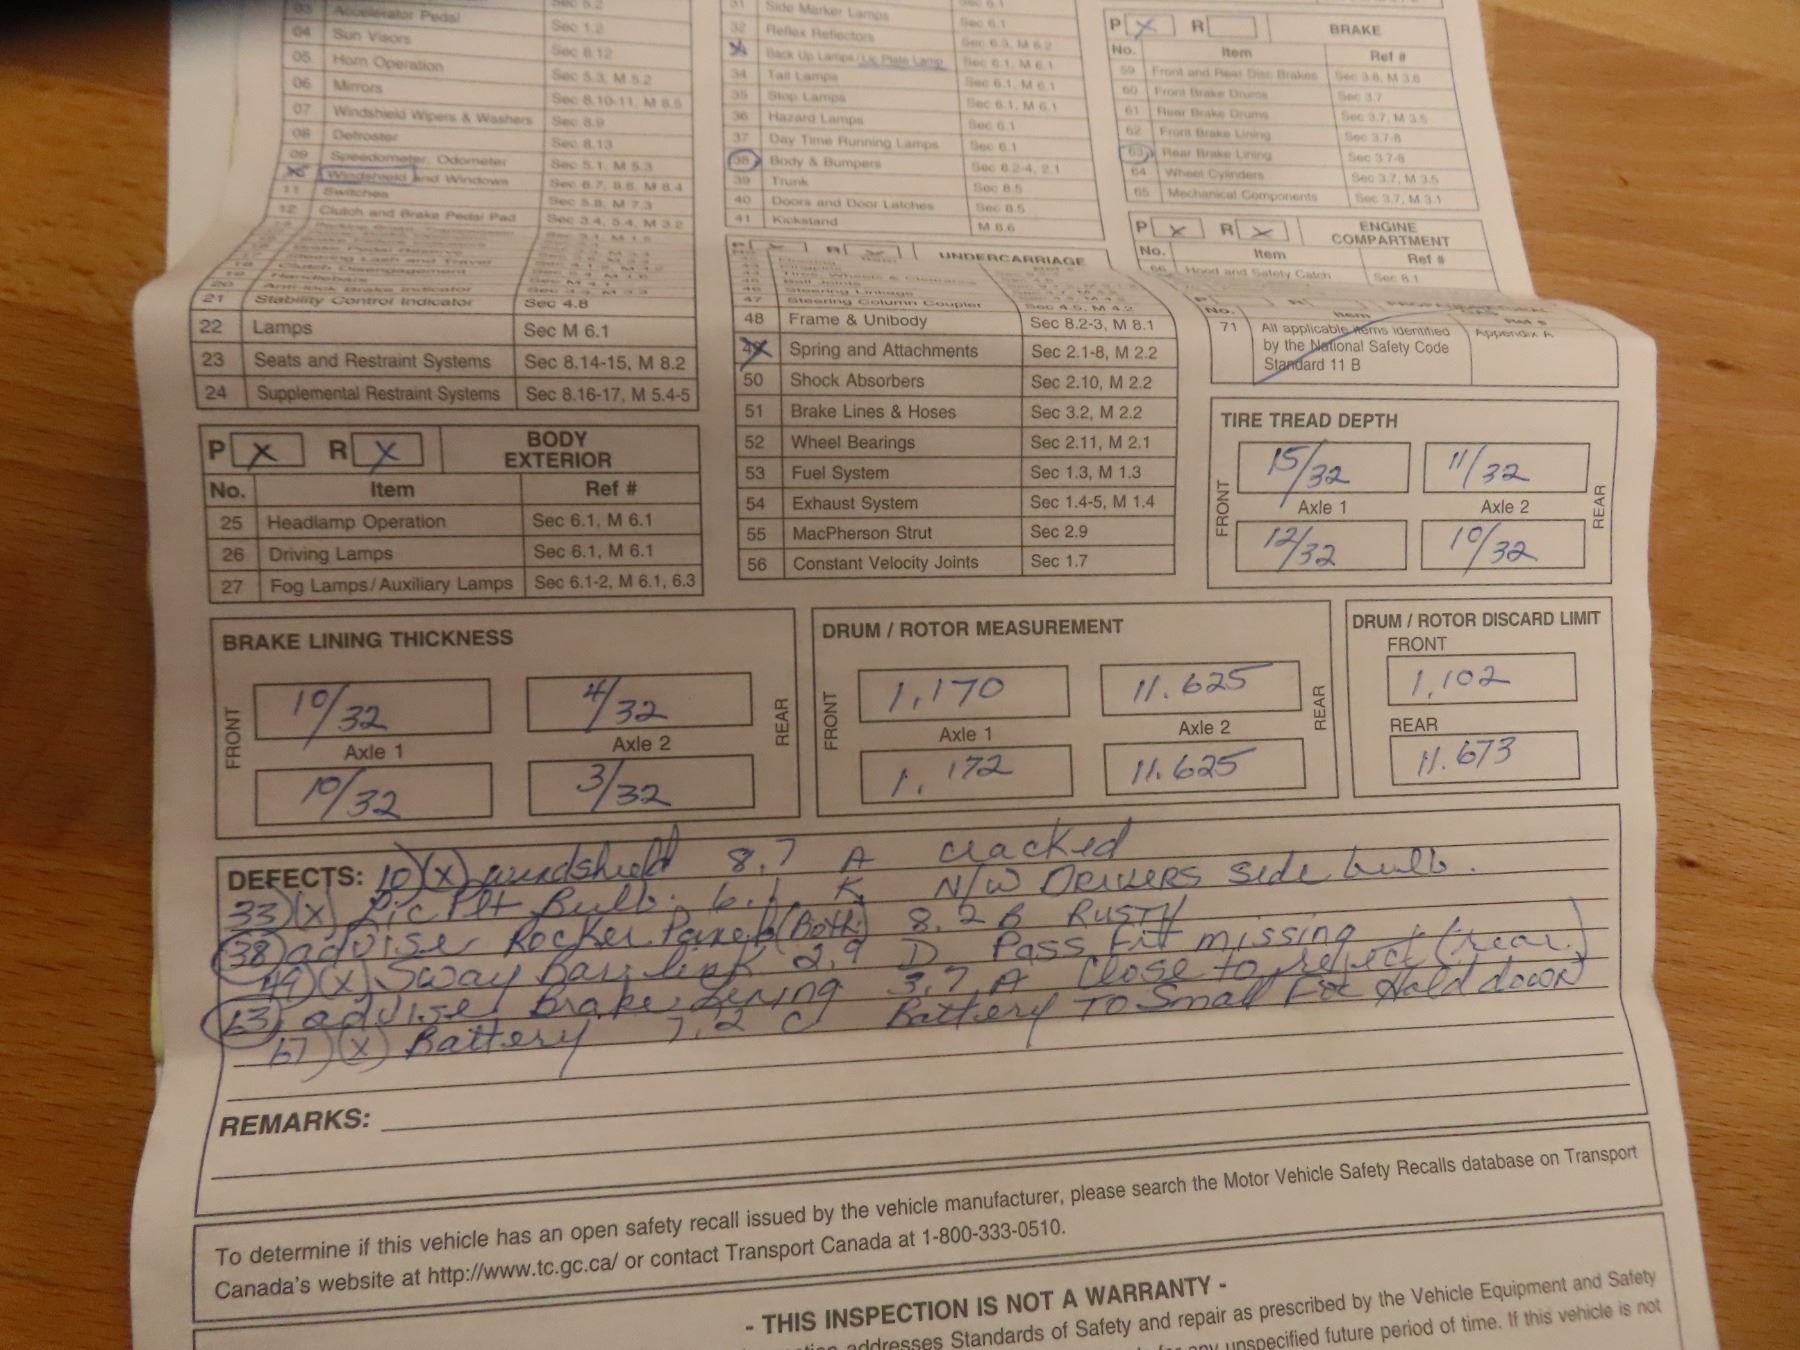 03 Accelerator Pedal Sec 1.2
04 Sun Visors Sec 8.12
05 Horn Operation Sec 5.3, M 5.2
06 Mirrors Sec 8.10-11, M 8.5
07 Windshield Wipers & Washers Sec 8.9
08 Defroster Sec 8.13
09 Speedometer, Odometer Sec 5.1, M 5.3
Windshield and Windows Sec 8.7, 8.8, M 8.4
11 Switches Sec 5.8, M 7.3
12 Clutch and Brake Pedal Pad Sec 3.4, 5.4, M 3.2
Steering Lash and Travel
Clutch Disengagement
19 Handlebars
20 Anti-lock Brake Indicator
21 Stability Control Indicator Sec 4.8
22 Lamps Sec M 6.1
23 Seats and Restraint Systems Sec 8.14-15, M 8.2
24 Supplemental Restraint Systems Sec 8.16-17, M 5.4-5
P X R X BODY EXTERIOR
No. Item Ref #
25 Headlamp Operation Sec 6.1, M 6.1
26 Driving Lamps Sec 6.1, M 6.1
27 Fog Lamps/Auxiliary Lamps Sec 6.1-2, M 6.1, 6.3
31 Side Marker Lamps Sec 6.1
32 Reflex Reflectors Sec 6.3, M 6.2
Back Up Lamps/Lic Plate Lamp Sec 6.1, M 6.1
34 Tail Lamps Sec 6.1, M 6.1
35 Stop Lamps Sec 6.1, M 6.1
36 Hazard Lamps Sec 6.1
37 Day Time Running Lamps Sec 6.1
38 Body & Bumpers Sec 8.2-4, 2.1
39 Trunk Sec 8.5
40 Doors and Door Latches Sec 8.5
41 Kickstand M 8.6
P X R X UNDERCARRIAGE
45 Ball Joints
46 Steering Linkage
47 Steering Column Coupler Sec 4.5, M 4.2
48 Frame & Unibody Sec 8.2-3, M 8.1
49 Spring and Attachments Sec 2.1-8, M 2.2
50 Shock Absorbers Sec 2.10, M 2.2
51 Brake Lines & Hoses Sec 3.2, M 2.2
52 Wheel Bearings Sec 2.11, M 2.1
53 Fuel System Sec 1.3, M 1.3
54 Exhaust System Sec 1.4-5, M 1.4
55 MacPherson Strut Sec 2.9
56 Constant Velocity Joints Sec 1.7
P X R BRAKE
No. Item Ref #
59 Front and Rear Disc Brakes Sec 3.8, M 3.6
60 Front Brake Drums Sec 3.7
61 Rear Brake Drums Sec 3.7, M 3.5
62 Front Brake Lining Sec 3.7-8
63 Rear Brake Lining Sec 3.7-8
64 Wheel Cylinders Sec 3.7, M 3.5
65 Mechanical Components Sec 3.7, M 3.1
P X R X ENGINE COMPARTMENT
No. Item Ref #
66 Hood and Safety Catch Sec 8.1
No. Item Ref #
71 All applicable items identified Appendix A
by the National Safety Code
Standard 11 B
TIRE TREAD DEPTH
FRONT 15/32 11/32 REAR
Axle 1 Axle 2
12/32 10/32
BRAKE LINING THICKNESS
FRONT 10/32 4/32 REAR
Axle 1 Axle 2
10/32 3/32
DRUM / ROTOR MEASUREMENT
FRONT 1,170 11.625 REAR
Axle 1 Axle 2
1.172 11.625
DRUM / ROTOR DISCARD LIMIT
FRONT
1,102
REAR
11.673
DEFECTS: 10)(x) windshield 8.7 A cracked
33)(x) Lic Plt Bulb. 6.1 K N/W Drivers side bulb.
38) advise Rocker Panels (Both) 8.2 B Rusty
49)(x) Sway bar link 2.9 D Pass Frt missing
63) advise Brake Lining 3.7 A Close to reject (rear)
67)(x) Battery 7.2 C Battery To Small For Hold down
REMARKS:
To determine if this vehicle has an open safety recall issued by the vehicle manufacturer, please search the Motor Vehicle Safety Recalls database on Transport
Canada's website at http://www.tc.gc.ca/ or contact Transport Canada at 1-800-333-0510.
- THIS INSPECTION IS NOT A WARRANTY -
addresses Standards of Safety and repair as prescribed by the Vehicle Equipment and Safety
any unspecified future period of time. If this vehicle is not